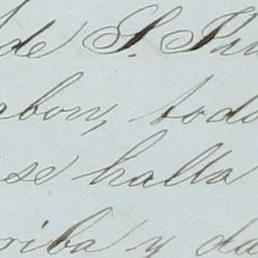 de S. Fran
abon, todo
se halla
riba y da